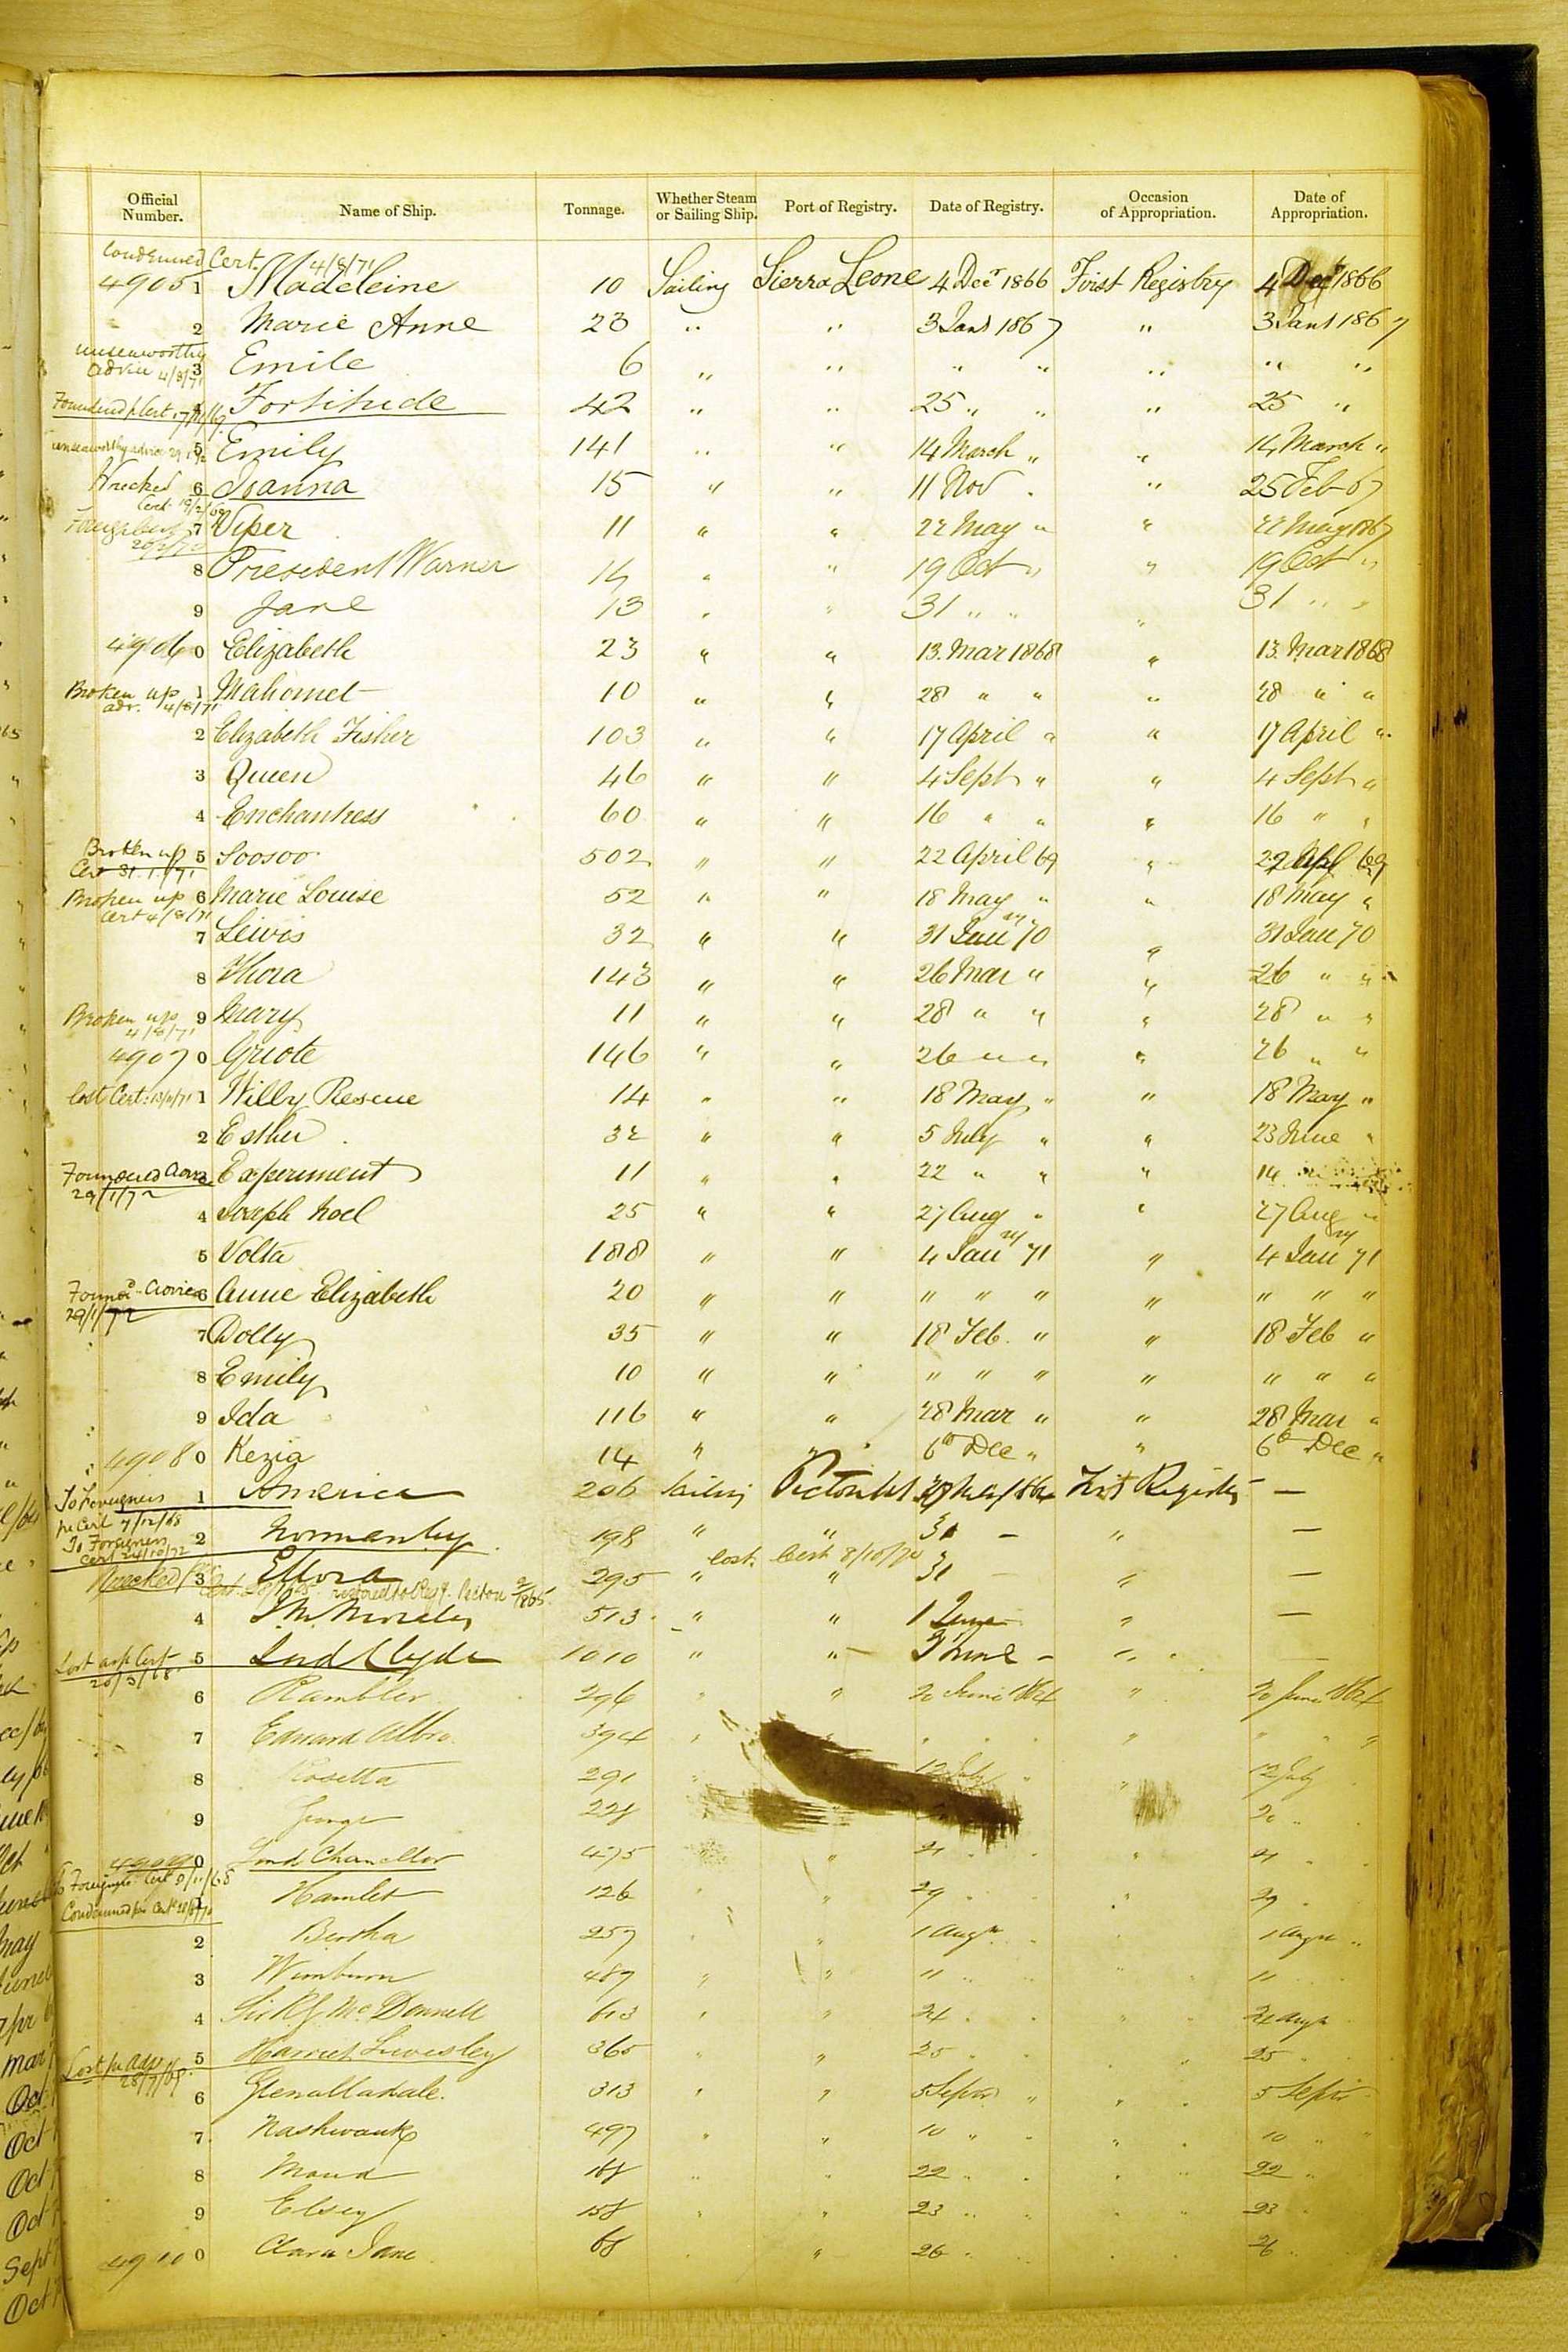 Official Number. Name of Ship. Tonnage. Whether Steam or Sailing Ship. Port of Registry. Date of Registry. Occasion of Appropriation. Date of Appropriation.
Condemned Cert. 4/8/71
49051 Madeleine 10 Sailing Sierra Leone 4 Decr 1866 First Registry 4 Decr 1866
2 Marie Anne 23 " " 3 Jany 1867 " 3 Jany 1867
unseaworthy advice 4/8/71
3 Emile 6 " " " " " " "
Foundered p. Cert 17/11/69
4 Fortitude 42 " " 25 " " " 25 "
unseaworthy advice
5 Emily 141 " " 14 March " " 14 March "
Wrecked Cert 19/2/69
6 Joanna 15 " " 11 Nov " " 25 Feb 67
7 Viper 11 " " 22 May " " 22 May 1867
8 President Warner 14 " " 19 Oct " " 19 Oct "
9 Jane 13 " " 31 " " " 31 " "
49060 Elizabeth 23 " " 13. Mar 1868 " 13. Mar 1868
Broken up adv. 4/8/71
1 Mahomet 10 " " 28 " " " 28 " "
2 Elizabeth Fisher 103 " " 17 April " " 17 April "
3 Queen 46 " " 4 Sept " " 4 Sept "
4 Enchantress 60 " " 16 " " " 16 " "
Broken up Cert 31.1.71
5 Soosoo 502 " " 22 April 69 " 22 Apl 69
Broken up Cert 4/8/71
6 Marie Louise 52 " " 18 May " " 18 May "
7 Lewis 32 " " 31 Jany 70 " 31 Jan 70
8 Thora 143 " " 26 Mar " " 26 " "
Broken up 4/8/71
9 Mary 11 " " 28 " " " 28 " "
49070 Griote 146 " " 26 " " " 26 " "
Lost Cert:
1 Willy Rescue 14 " " 18 May " " 18 May "
2 Esther 32 " " 5 July " " 23 June "
Foundered 29/1/72
3 Experiment 11 " " 22 " " " 14
4 Joseph Noel 25 " " 27 Aug " " 27 Aug "
5 Volta 188 " " 4 Jany 71 " 4 Jany 71
Found. advice 29/1/72
6 Anne Elizabeth 20 " " " " " " " " "
7 Dolly 35 " " 18 Feb. " " 18 Feb "
8 Emily 10 " " " " " " " " "
9 Ida 116 " " 28 Mar " " 28 Mar "
49080 Kezia 14 " " 6th Dec " " 6th Dec "
To Foreigners pr Cert 7/12/68
1 America 206 Sailing Pictou NS May 1864 First Registry —
To Foreigners Cert 24/10/72
2 Normanby 198 " " 31 — " —
Lost. Cert 8/10/70
Wrecked
3 Ellora 295 " " 31 — " —
restored to Reg. Pictou
4 513 " " 1 June " —
Lost as p Cert 20/3/68
5 Lord Clyde 1010 " " June — " —
6 Rambler 296 " " 20 June 1864 " 20 June 1864
7 Edward Albro 394 " " " " " "
8 Rosetta 291 12 July " " 12 July
9 228 20 "
49090 Lord Chancellor 475 " 21 " " 21 "
To Foreigners Cert
Condemned per Cert
1 Hamlet 126 " " 29 " " 29
2 Bertha 257 " " 1 Augt " 1 Augt "
3 Wimburn 487 " " 11 " " 11
4 McDonnell 613 " " 24 " " 24 Augt
Lost pr adv 28/7/69
5 Harriet Livesley 365 " " 25 " " 25
6 Glenalladale. 313 " " 5 Septr " " 5 Septr
7 Nashwauk 497 " " 10 " " 10 "
8 Maud 168 " " 22 " " 22 "
9 Elsey 158 " " 23 " " 23
49100 Clara Jane 68 " 26 " 26